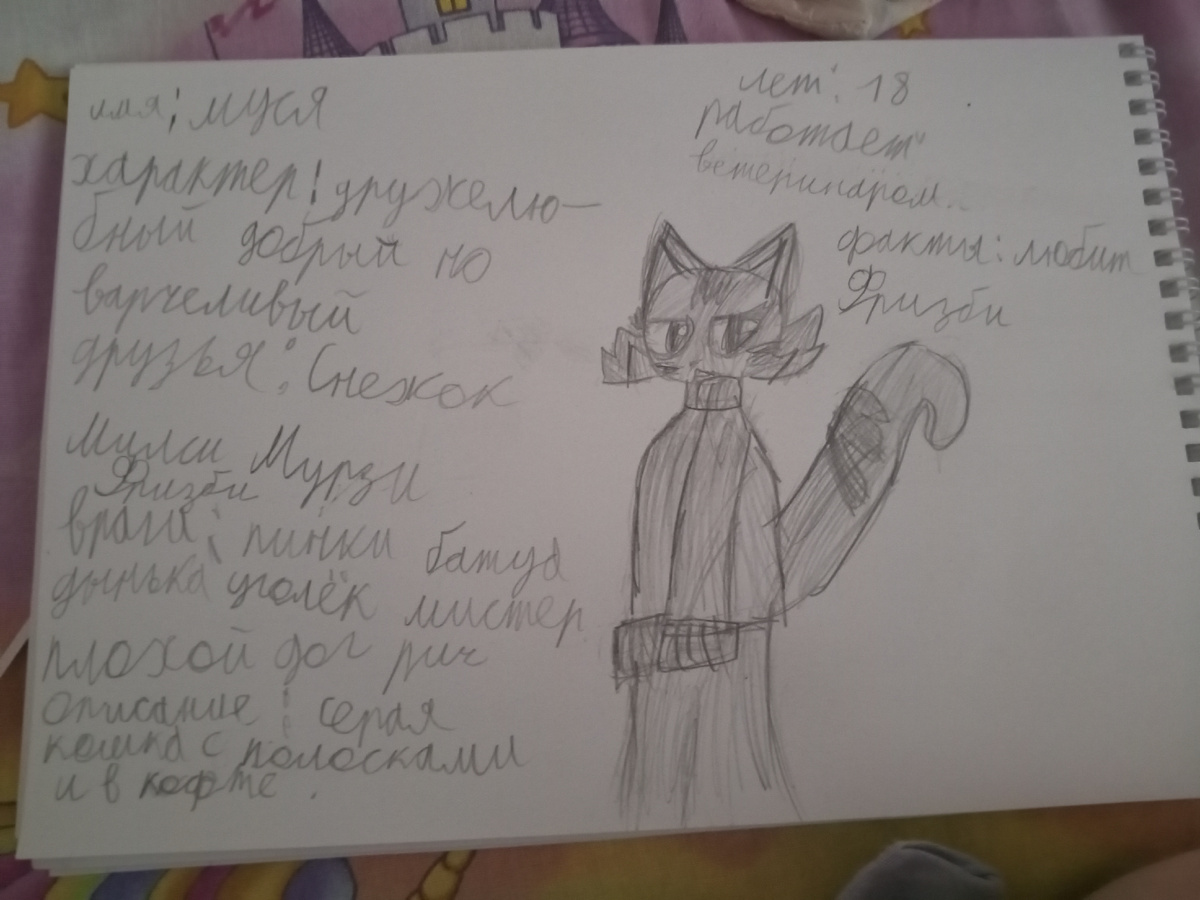 имя; муся
характер! дружелю-
бный добрый но
варчеливый
друзья: Снежок
Милси Мурзи
Фризби
враги; пинки батуд
дынька уголёк мистер
плохой дог рич
описание: серая
кошка с полосками
и в кофте.
лет: 18
работает
ветеринаром..
факты: любит
Фризби